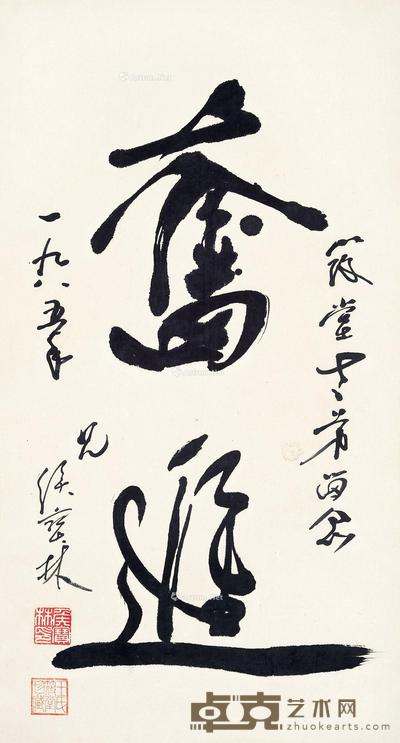 筱堂老弟留念
奮進
一九八五年
兄
侯寶林
侯寶林印
卓克艺术网
zhuokearts.com